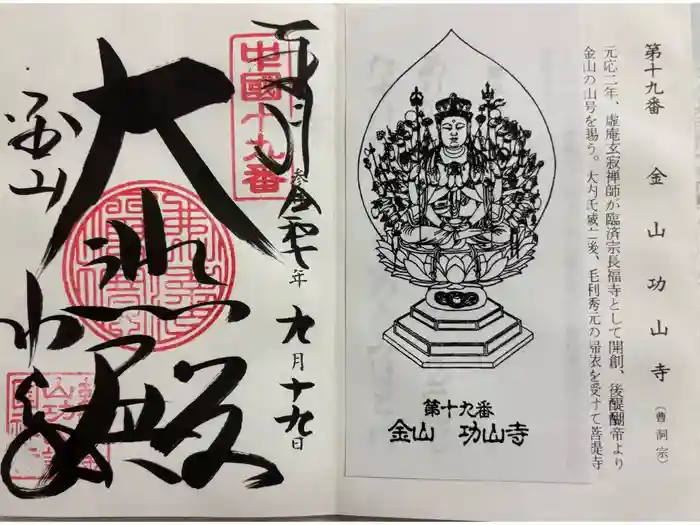 第十九番　金山功山寺（曹洞宗）
元応二年、虚庵玄寂禅師が臨済宗長福寺として開創、後醍醐帝より
金山の山号を賜う。大内氏滅亡後、毛利秀元の帰依を受けて菩提寺
第十九番
金山　功山寺
中國十九番
奉拝
年九月十九日
大悲殿
金山
功山寺